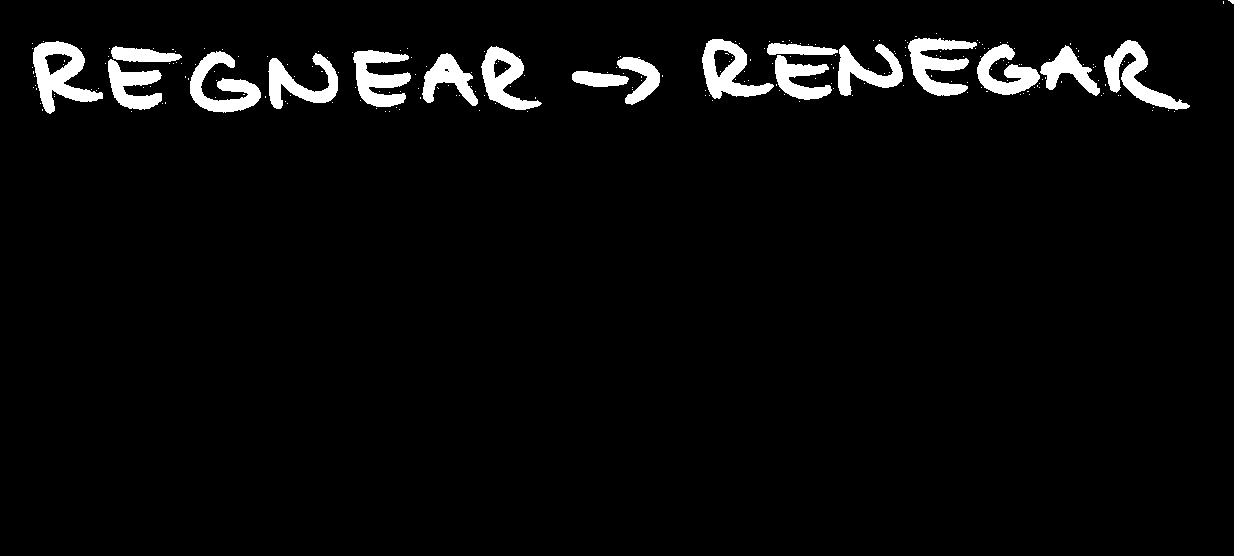 REGNEAR → RENEGAR